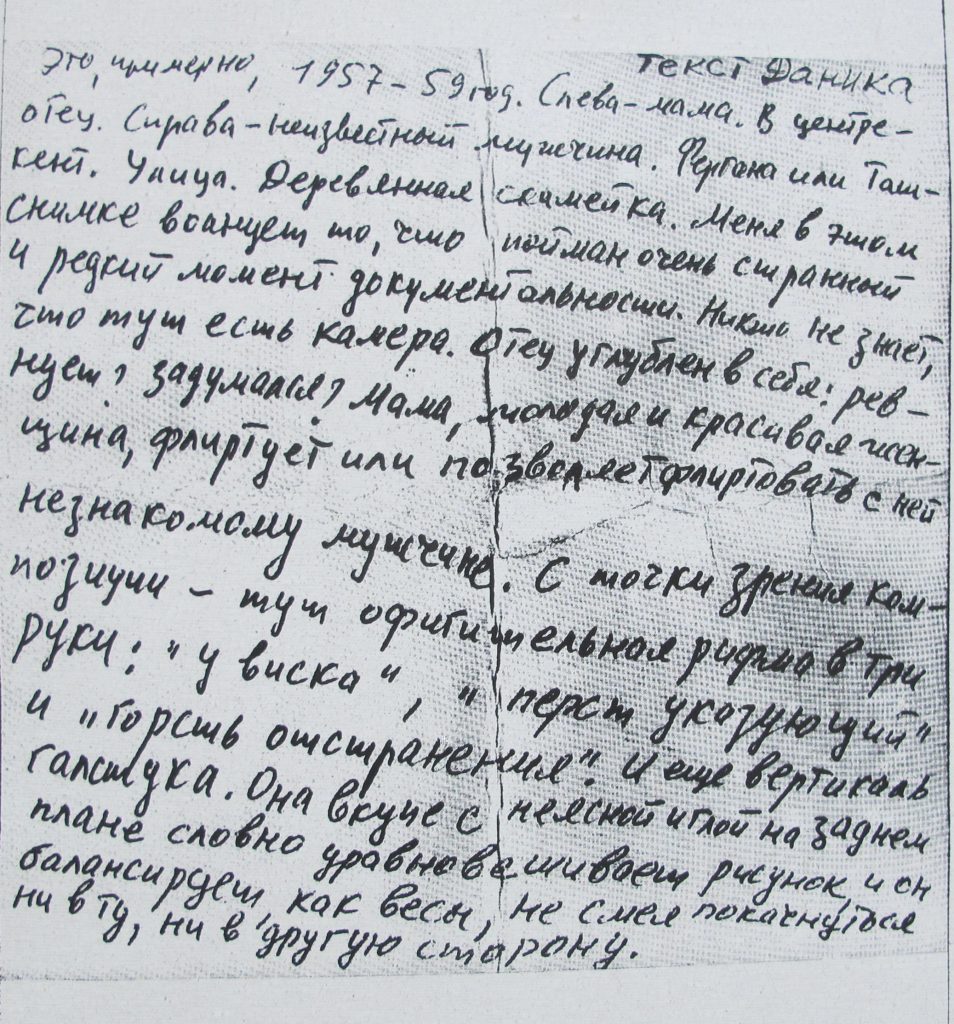 Текст Даника
Это, примерно, 1957–59 год. Слева – мама. В центре –
отец. Справа – неизвестный мужчина. Фергана или Таш-
кент. Улица. Деревянная скамейка. Меня в этом
снимке волнует то, что пойман очень странный
и редкий момент документальности. Никто не знает,
что тут есть камера. Отец углублен в себя: рев-
нует? задумался? Мама, молодая и красивая жен-
щина, флиртует или позволяет флиртовать с ней
незнакомому мужчине. С точки зрения ком-
позиции – тут офигительная рифма в три
руки: "у виска", "перст указующий"
и "горсть отстранения". И еще вертикаль
галстука. Она вкупе с неясной иглой на заднем
плане словно уравновешивает рисунок, и он
балансирует, как весы, не смея покачнуться
ни в ту, ни в другую сторону.